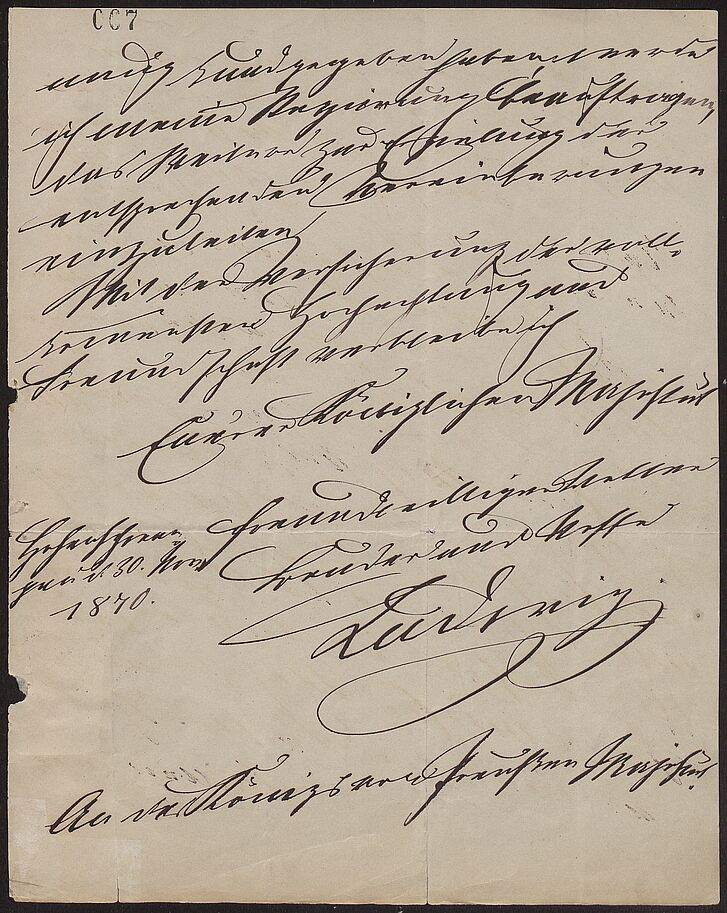 CC7
nung kundgegeben haben, werde
ich meine Regierung beauftragen,
das Weitere zur Erzielung der
entsprechenden Vereinbarungen
einzuleiten.
Mit der Versicherung der voll-
kommensten Hochachtung und
Freundschaft verbleibe ich
Eurer Königlichen Majestät
freundwilliger Vetter
Bruder und Neffe
Ludwig
Hohenschwan
gau d. 30. Nov
1870.
An des Königs von Preußen Majestät.